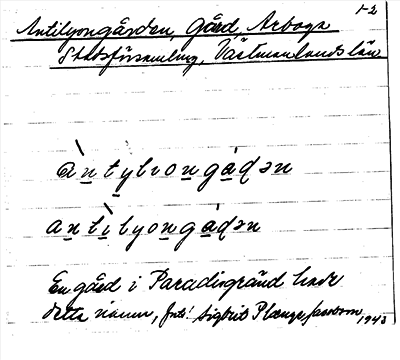 1-2
Antilyongården, Gård, Arboga
Stadsförsamling, Västmanlands län
àntylyongáḍən
antìlyongáḍən
En gård i Paradisgränd hade
detta namn, Sigbrit Plænge Jacobson
1943